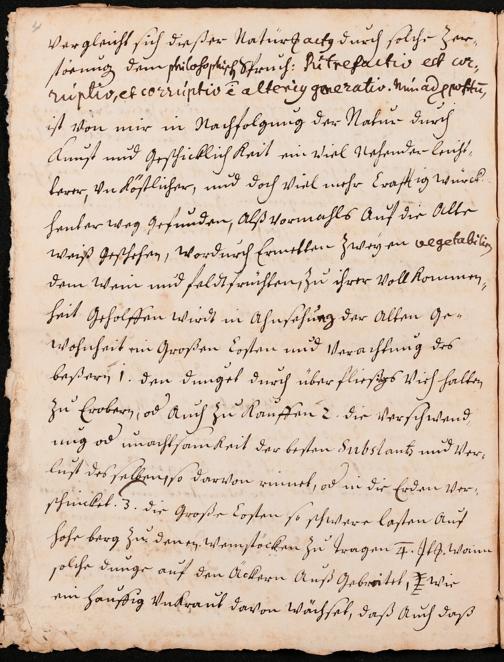 vergleicht sich dießer Natur Facts durch solche Zer-
störung dem philosophisch Spruch: Putrefactio est cor-
ruptio, et corruptio ē alterius generatio. Nun ad
ist von mir in Nachfolgung der Natur durch
Kunst und Geschicklich Keit ein viel Nehender leicht-
terer, Vn Köstlicher, und doch viel mehr Crafftig würck-
henter weg Gefunden, Alß vormahls Auf die Alte
weiß Geschehen, wordurch Ermelten Zweyen vegetabilien
dem Wein und feldtfrüchten, zu ihrer Voll Kommen-
heit Geholffen wirdt in Ahnsehung der Alten Ge-
wohnheit ein Großen Costen und Verachtung des
beßern 1. den dunget durch überfließigs Vieh halten
zu Erobern, od Auch zu Kauffen 2. die verschwend
ung od unachtsamkeit der besten Substantz und Ver-
lust desselben, so darvon rinnet, od in die Erden ver-
schincket. 3. die Große Costen so schwere lasten Auf
hohe berg zu denen Weinstöcken zu tragen 4. Itẽ. wann
solche dunge auf den Äckern Auß Gebreitet, wie
ein hauffig Vnkraut davon wächset, daß Auch daß